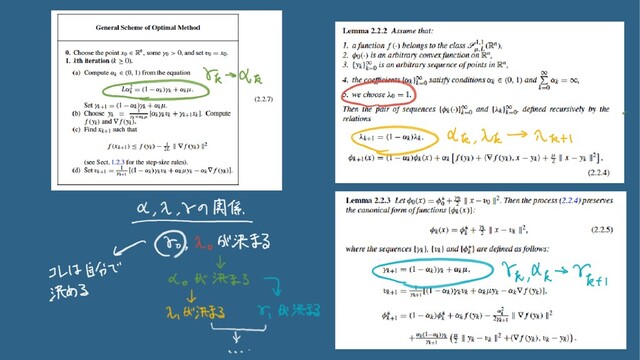 General Scheme of Optimal Method
0. Choose the point x₀ ∈ ℝⁿ, some γ₀ > 0, and set v₀ = x₀.
1. kth iteration (k ≥ 0).
(a) Compute αₖ ∈ (0, 1) from the equation
Lαₖ² = (1 − αₖ)γₖ + αₖμ.
γₖ → αₖ
(2.2.7)
Set γₖ₊₁ = (1 − αₖ)γₖ + αₖμ.
(b) Choose yₖ = 1/(γₖ+αₖμ) [αₖγₖvₖ + γₖ₊₁xₖ]. Compute
f(yₖ) and ∇f(yₖ).
(c) Find xₖ₊₁ such that
f(xₖ₊₁) ≤ f(yₖ) − 1/(2L) ‖ ∇f(yₖ) ‖²
(see Sect. 1.2.3 for the step-size rules).
(d) Set vₖ₊₁ = 1/γₖ₊₁ [(1 − αₖ)γₖvₖ + αₖμyₖ − αₖ∇f(yₖ)].
α, λ, γの関係
γ₀, λ₀ が決まる
コレは自分で
決める
α₀ が決まる
λ₁が決まる
γ₁が決まる
....
Lemma 2.2.2 Assume that:
1. a function f(·) belongs to the class
2. φ₀(·) is an arbitrary convex function on ℝⁿ,
3. {yₖ}ₖ₌₀^∞ is an arbitrary sequence of points in ℝⁿ,
4. the coefficients {αₖ}ₖ₌₀^∞ satisfy conditions αₖ ∈ (0, 1) and ∑ₖ₌₀^∞ αₖ = ∞,
5. we choose λ₀ = 1.
Then the pair of sequences {φₖ(·)}ₖ₌₀^∞ and {λₖ}ₖ₌₀^∞, defined recursively by the
relations
λₖ₊₁ = (1 − αₖ)λₖ,
αₖ, λₖ → λₖ₊₁
φₖ₊₁(x) = (1 − αₖ)φₖ(x) + αₖ [f(yₖ) + ⟨∇f(yₖ), x − yₖ⟩ + μ/2 ‖ x − yₖ ‖²],
(2.2.4)
Lemma 2.2.3 Let φ₀(x) = φ₀* + γ₀/2 ‖ x − v₀ ‖². Then the process (2.2.4) preserves
the canonical form of functions {φₖ(x)}:
φₖ(x) ≡ φₖ* + γₖ/2 ‖ x − vₖ ‖²,
(2.2.5)
where the sequences {γₖ}, {vₖ} and {φₖ*} are defined as follows:
γₖ₊₁ = (1 − αₖ)γₖ + αₖμ,
γₖ, αₖ → γₖ₊₁
vₖ₊₁ = 1/γₖ₊₁ [(1 − αₖ)γₖvₖ + αₖμyₖ − αₖ∇f(yₖ)],
φₖ₊₁* = (1 − αₖ)φₖ* + αₖf(yₖ) − αₖ²/(2γₖ₊₁) ‖ ∇f(yₖ) ‖²
+ αₖ(1−αₖ)γₖ/γₖ₊₁ (μ/2 ‖ yₖ − vₖ ‖² + ⟨∇f(yₖ), vₖ − yₖ⟩).